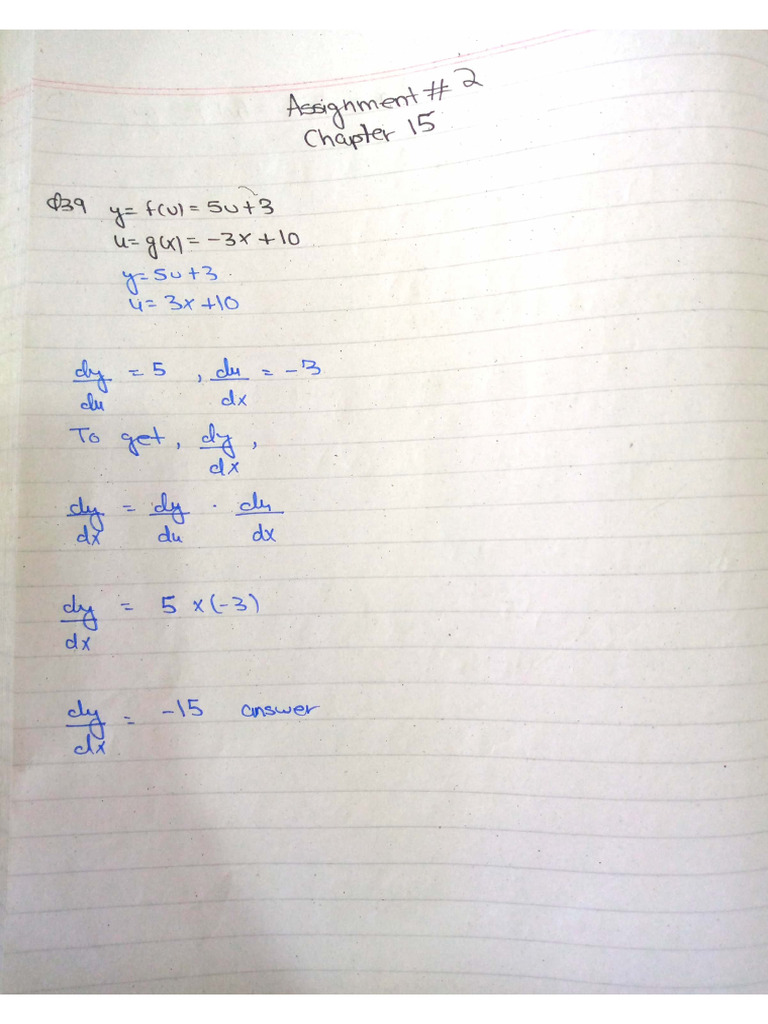 Assignment # 2
Chapter 15
Q39 y = f(u) = 5u + 3
u = g(x) = -3x + 10
y = 5u + 3
u = 3x + 10
dy/du = 5 , du/dx = -3
To get, dy/dx ,
dy/dx = dy/du . du/dx
dy/dx = 5 x (-3)
dy/dx = -15 answer